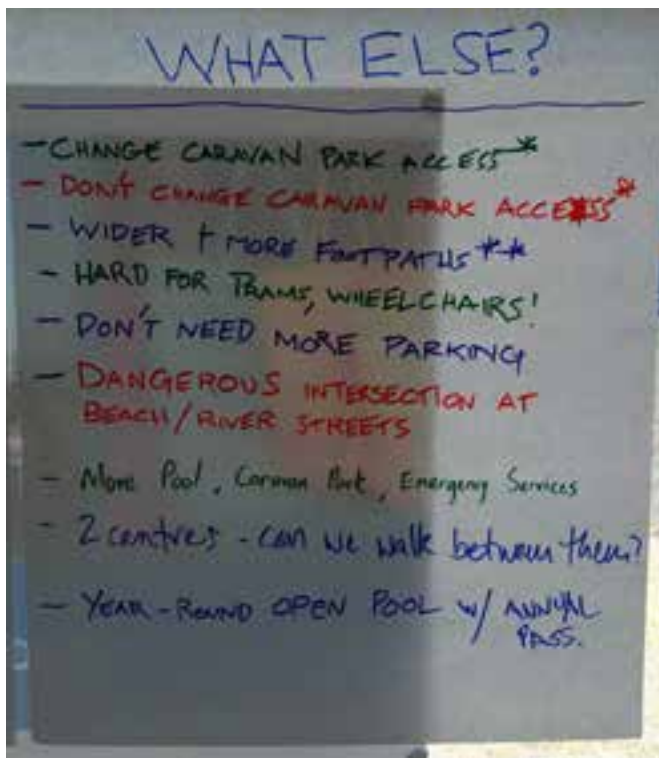 WHAT ELSE?
- CHANGE CARAVAN PARK ACCESS *
- DON'T CHANGE CARAVAN PARK ACCESS *
- WIDER + MORE FOOTPATHS **
- HARD FOR PRAMS, WHEELCHAIRS!
- DON'T NEED MORE PARKING
- DANGEROUS INTERSECTION AT
BEACH/RIVER STREETS
- More Pool, Caravan Park, Emergency Services
- 2 centres - can we walk between them?
- YEAR-ROUND OPEN POOL w/ ANNUAL
PASS.